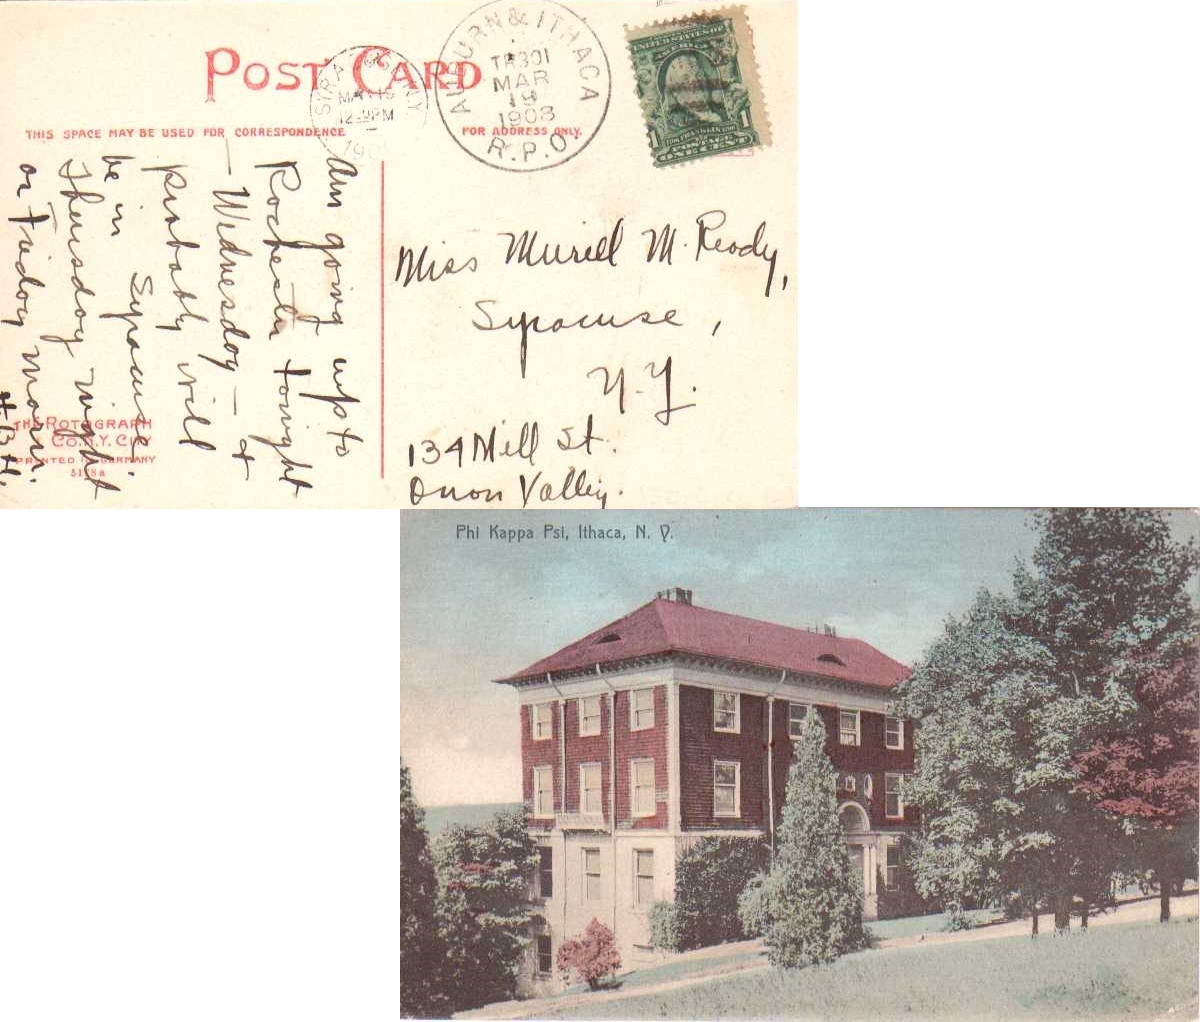 POST CARD
THIS SPACE MAY BE USED FOR CORRESPONDENCE
FOR ADDRESS ONLY.
AUBURN & ITHACA
TR301
MAR
19
1908
R.P.O.
UNITED STATES OF
AMERICA
1
FRANKLIN
POSTAGE
ONE CENT
Am going up to
Rochester tonight
— Wednesday — &
probably will
be in Syracuse
Thursday night
or Friday morn.
H.B.H.
Miss Muriel M. Ready,
Syracuse,
N.Y.
134 Mill St.
Onon Valley.
THE ROTOGRAPH
CO. N.Y. CITY
PRINTED IN GERMANY
5128a
Phi Kappa Psi, Ithaca, N. Y.